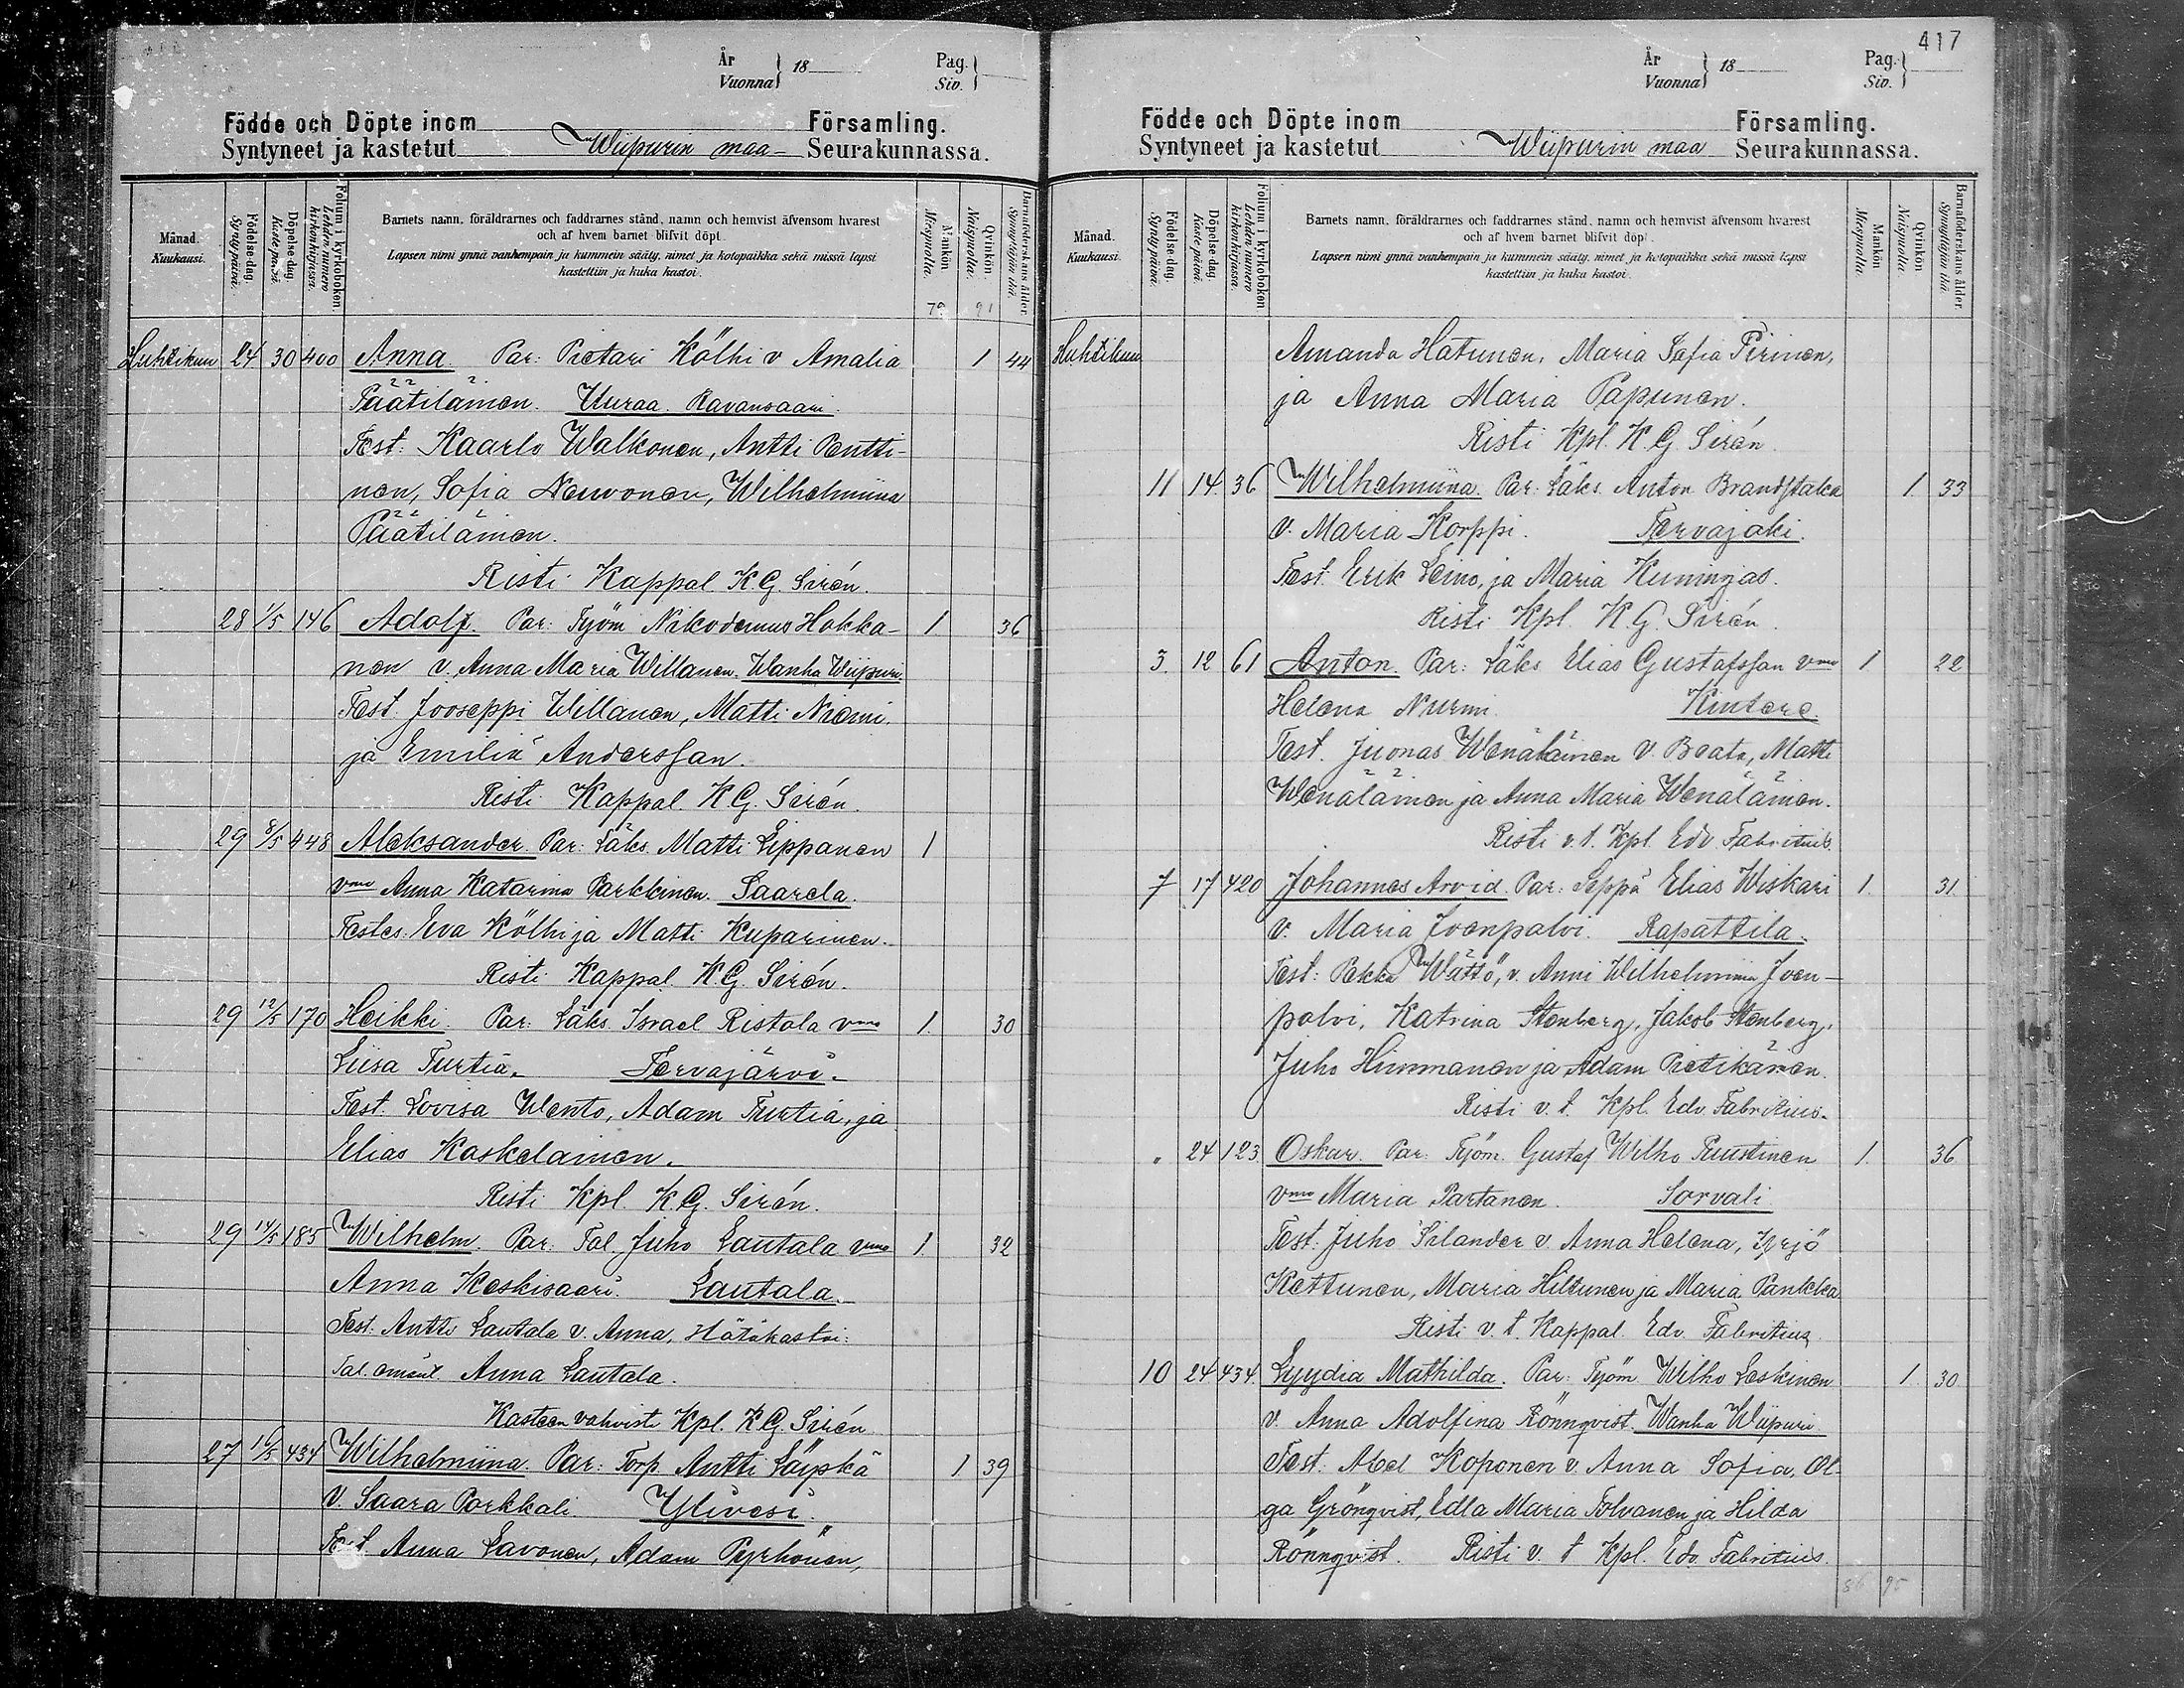 År
Vuonna } 18
Pag.
Siv. }
Födde och Döpte inom Församling.
Syntyneet ja kastetut Wiipurin maa- Seurakunnassa.
Månad.
Kuukausi.
Födelse-dag.
Syntypäivä.
Döpelse-dag.
Kastepäivä.
Folium i kyrkoboken.
Lehden numero kirkonkirjassa.
Barnets namn, föräldrarnes och faddrarnes stånd, namn och hemvist äfvensom hvarest
och af hvem barnet blifvit döpt.
Lapsen nimi ynnä vanhempain ja kummein sääty, nimet ja kotopaikka sekä missä lapsi
kastettiin ja kuka kastoi.
Mankön
Miespuolia.
Qvinkön
Naispuolia.
Barnaföderskans ålder.
Synnyttäjän ikä.
91
Huhtikuu 24 30 400 Anna. Par: Pietari Kölhi v Amalia 1 44
Päätiläinen. Uuraa. Ravansaari.
Test: Kaarlo Walkonen, Antti Pentti-
nen, Sofia Neuvonen, Wilhelmiina
Päätiläinen.
Risti Kappal K.G. Sirén.
28 1/5 146 Adolf. Par: Työm Nikodemus Hakka- 1 36
nen v. Anna Maria Willanen. Wanha Wiipuri
Test. Jooseppi Willanen, Matti Niemi
ja Emilia Andersson.
Risti Kappal. K.G. Sirén.
29 8/5 448 Aleksander. Par: Läks. Matti Lippanen 1
vmo Anna Katarina Parkkinen. Saarela.
Testes: Eva Kölhi ja Matti Kuparinen.
Risti Kappal. K.G. Sirén.
29 12/5 170 Heikki. Par: Läks. Israel Ristola vmo 1. 30
Liisa Turtia. Tervajärvi.
Test. Lovisa Wento, Adam Turtia, ja
Elias Kaskelainen.
Risti Kpl. K.G. Sirén.
29 14/5 185 Wilhelm. Par: Tal. Juho Lautala vmo 1. 32
Anna Keskisaari. Lautala.
Test: Antti Lautala v. Anna, Hätäkastoi:
Tal. Anna Lautala.
Kasteen vahvisti Kpl. K.G. Sirén
27 16/5 434 Wilhelmiina. Par: Torp. Antti Löyskä 1 39
v. Saara Porkkali. Ylivesi.
Test. Anna Lavonen, Adam Pyrhönen,
417
År
Vuonna } 18
Pag.
Siv. }
Födde och Döpte inom Församling.
Syntyneet ja kastetut Wiipurin maa Seurakunnassa.
Månad.
Kuukausi.
Födelse-dag.
Syntypäivä.
Döpelse-dag.
Kastepäivä.
Folium i kyrkoboken.
Lehden numero kirkonkirjassa.
Barnets namn, föräldrarnes och faddrarnes stånd, namn och hemvist äfvensom hvarest
och af hvem barnet blifvit döpt.
Lapsen nimi ynnä vanhempain ja kummein sääty, nimet ja kotopaikka sekä missä lapsi
kastettiin ja kuka kastoi.
Mankön
Miespuolia.
Qvinkön
Naispuolia.
Barnaföderskans ålder.
Synnyttäjän ikä.
Huhtikuu Amanda Hatunen, Maria Sofia Pirinen,
ja Anna Maria Papunen.
Risti Kpl. K.G. Sirén.
11 14 36 Wilhelmiina. Par: Läks. Anton Brandstaka 1. 33
v. Maria Korppi. Tervajoki.
Test. Erik Leino, ja Maria Kuningas.
Risti Kpl. K.G. Sirén.
3. 12 61 Anton. Par: Läks Elias Gustafsson vmo 1 22
Helena Nurmi. Kintere.
Test. Juonas Wenäläinen v. Beata, Matti
Wenäläinen ja Anna Maria Wenäläinen.
Risti v.t. Kpl. Edv. Fabritius.
7 17 420 Johannes Arvid. Par: Seppä Elias Wiskari 1. 31
v. Maria Ivenpalvi. Rapattila.
Test: Pekka Wättö, v. Anni Wilhelmiina Iven-
palvi, Katrina Stenberg, Jakob Stenberg,
Juho Himmanen ja Adam Pietikäinen.
Risti v.t. Kpl. Edv. Fabritius.
" 24 123 Oskar. Par: Työm. Gustaf Wilho Puustinen 1. 36
vmo Maria Partanen. Sorvali
Test. Juho Silander v. Anna Helena, Yrjö
Kettunen, Maria Hiltunen ja Maria Pankka
Risti v.t. Kappal. Edv. Fabritius.
10 24 434. Lyydia Mathilda. Par: Työm Wilho Leskinen 1 30
v. Anna Adolfina Rönnqvist. Wanha Wiipuri
Test. Abel Koponen v. Anna Sofia, Ol-
ga Grönqvist, Edla Maria Tolvanen ja Hilda
Rönnqvist. Risti v.t Kpl. Edv. Fabritius.
86 95